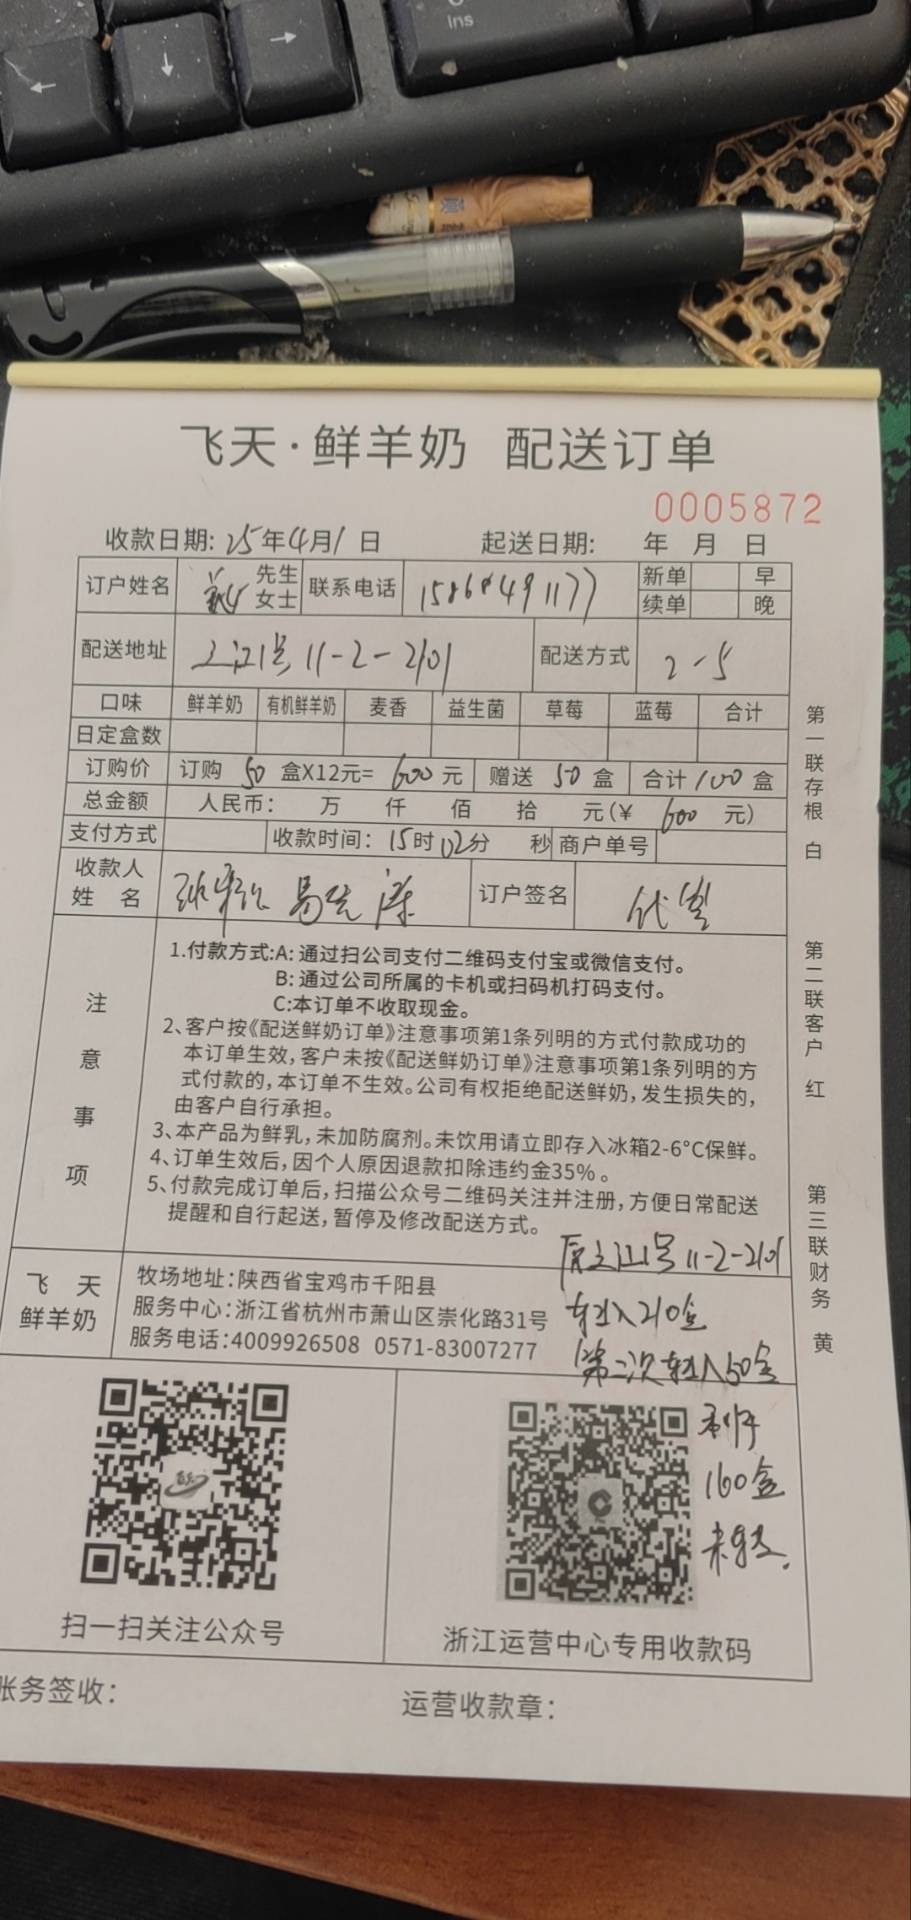 Ins
←
↓
→
飞天·鲜羊奶 配送订单
0005872
收款日期: 25年4月1日 起送日期: 年 月 日
订户姓名 先生 女士 联系电话 15868491177 新单 早
续单 晚
配送地址 之江1号 11-2-2101 配送方式 2-5
口味 鲜羊奶 有机鲜羊奶 麦香 益生菌 草莓 蓝莓 合计
日定盒数
订购价 订购 50 盒X12元= 600 元 赠送 50 盒 合计 100 盒
总金额 人民币: 万 仟 佰 拾 元(¥ 600 元)
支付方式 收款时间: 15时02分 秒 商户单号
收款人姓 名 订户签名 代签
注意事项
1.付款方式:A: 通过扫公司支付二维码支付宝或微信支付。
B: 通过公司所属的卡机或扫码机打码支付。
C:本订单不收取现金。
2、客户按《配送鲜奶订单》注意事项第1条列明的方式付款成功的
本订单生效,客户未按《配送鲜奶订单》注意事项第1条列明的方
式付款的,本订单不生效。公司有权拒绝配送鲜奶,发生损失的,
由客户自行承担。
3、本产品为鲜乳,未加防腐剂。未饮用请立即存入冰箱2-6°C保鲜。
4、订单生效后,因个人原因退款扣除违约金35%。
5、付款完成订单后,扫描公众号二维码关注并注册,方便日常配送
提醒和自行起送,暂停及修改配送方式。
原之江1号 11-2-2101
转入210盒
第二次转入50盒
剩余
160盒
未转.
飞 天
鲜羊奶
牧场地址:陕西省宝鸡市千阳县
服务中心:浙江省杭州市萧山区崇化路31号
服务电话:4009926508 0571-83007277
扫一扫关注公众号
浙江运营中心专用收款码
账务签收:
运营收款章:
第一联存根 白
第二联客户 红
第三联财务 黄